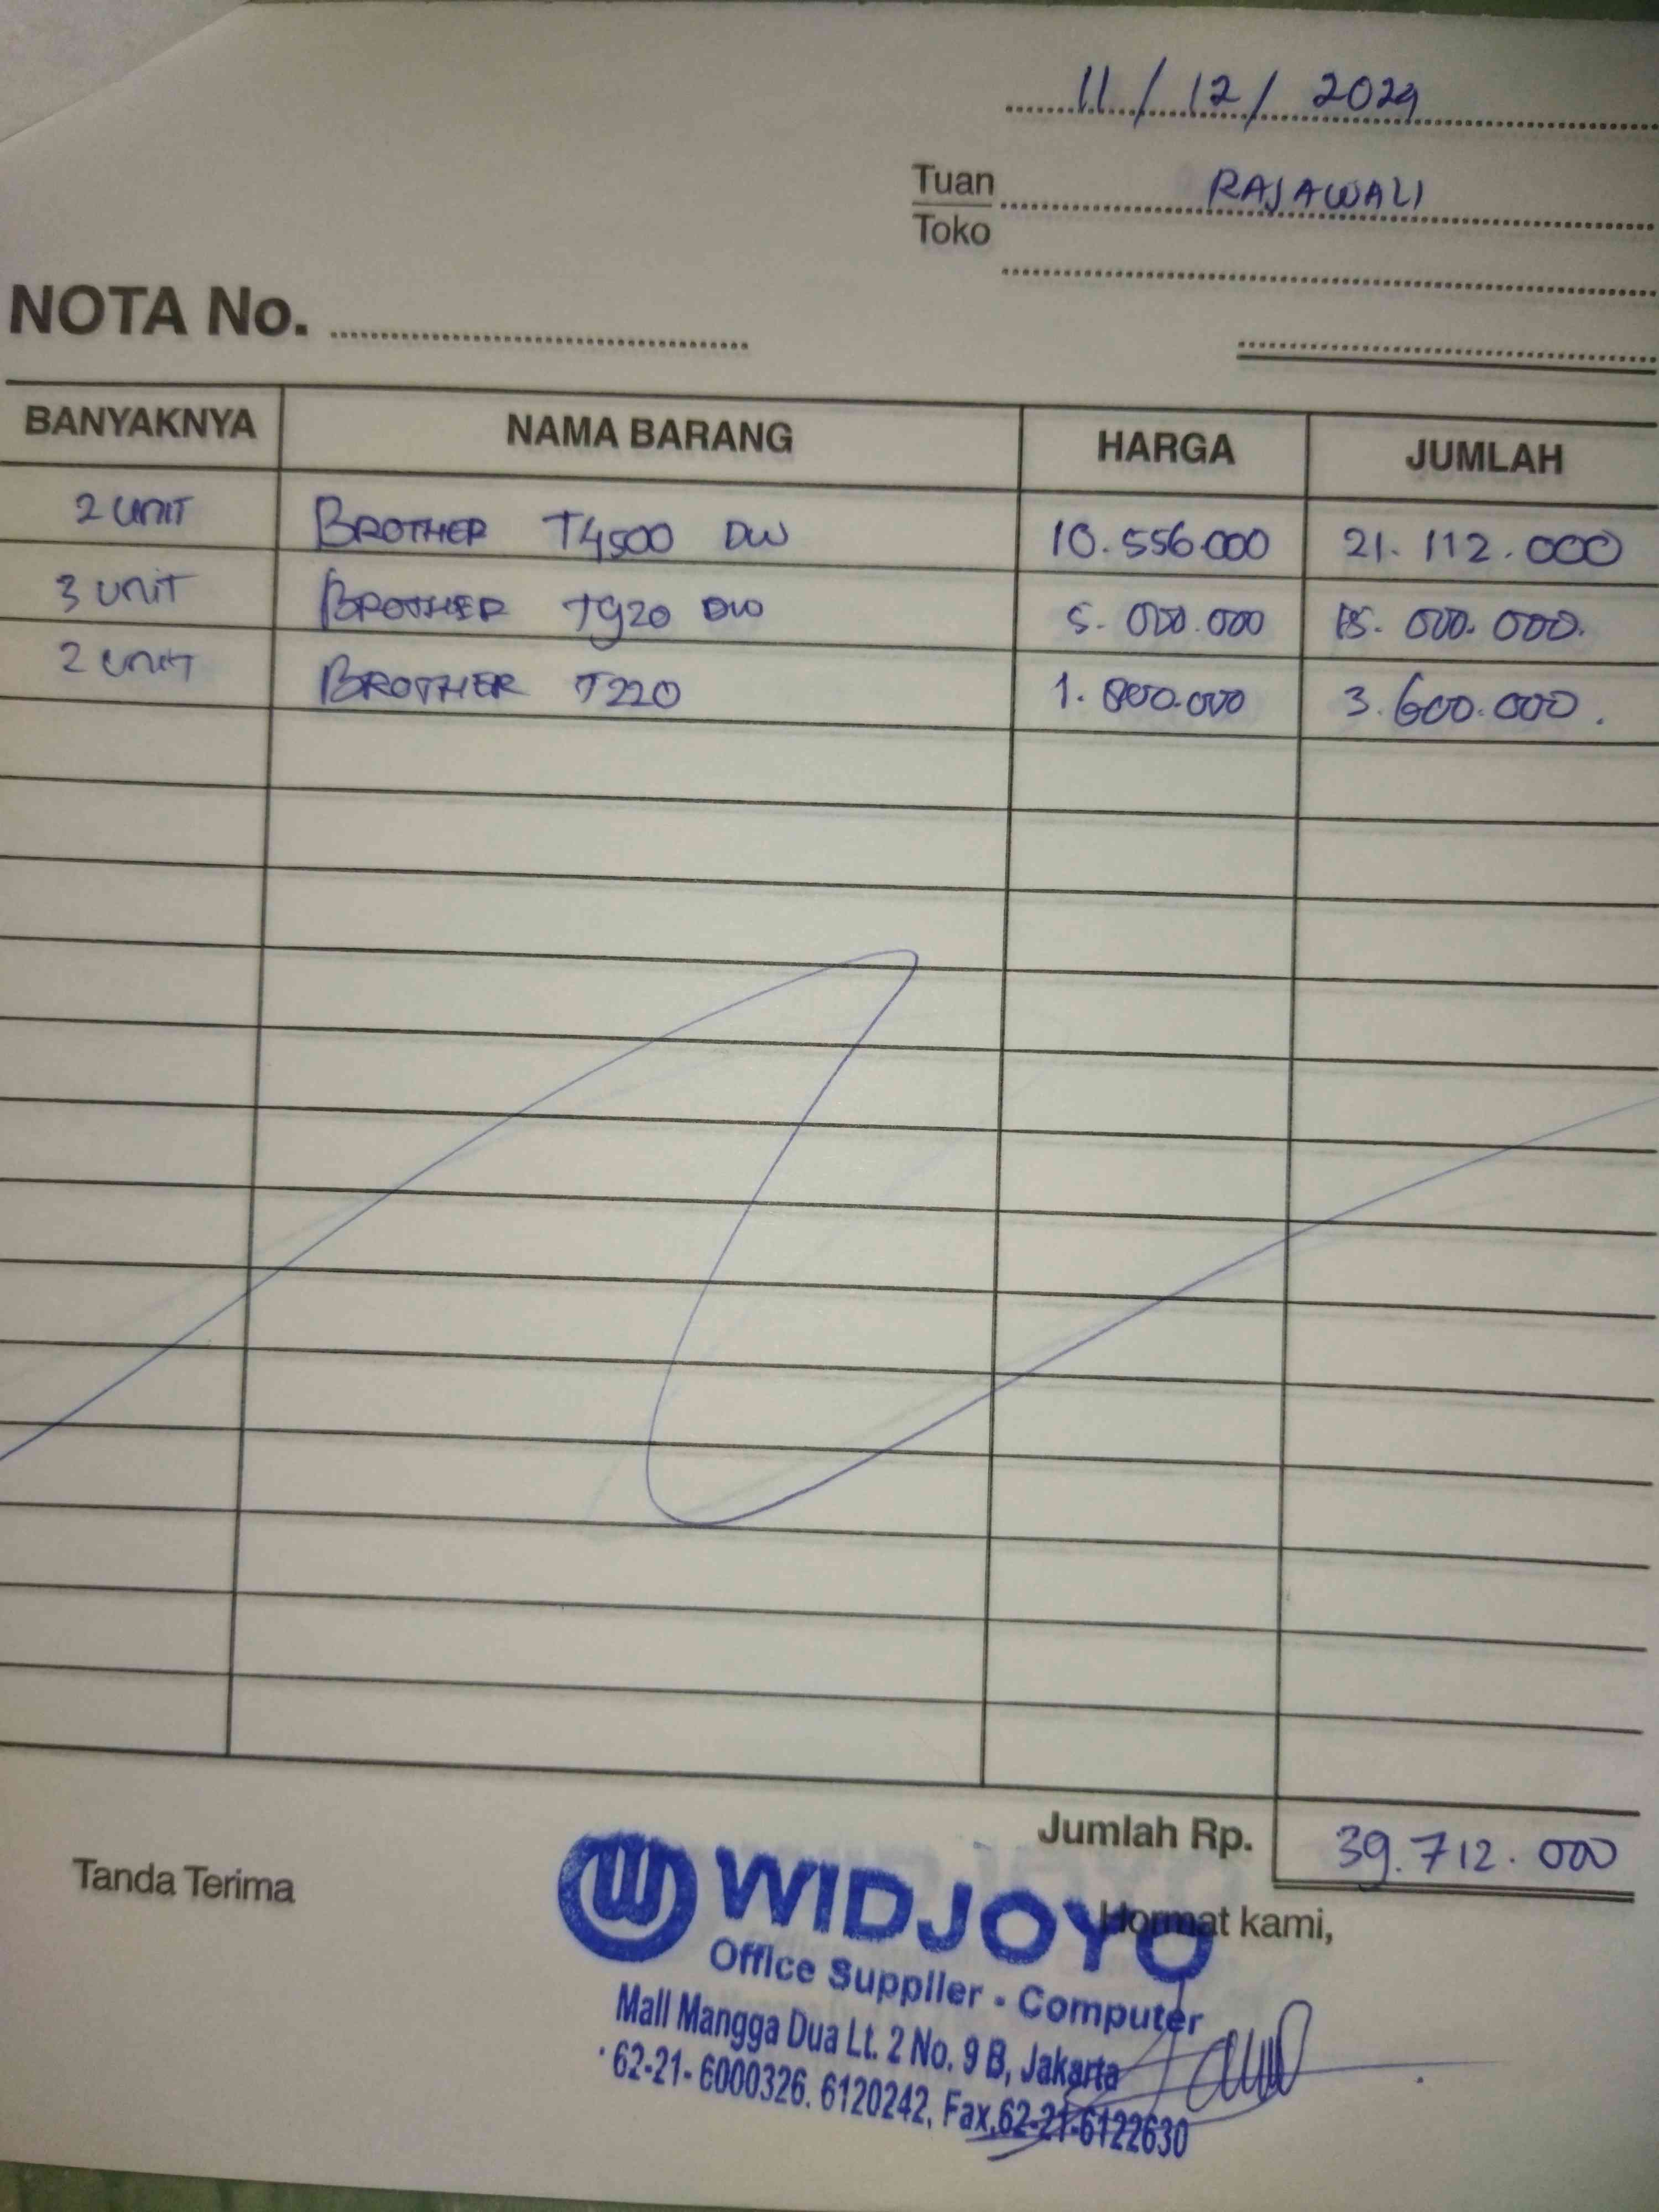 11 / 12 / 2024
Tuan RAJAWALI
Toko
NOTA No.
BANYAKNYA NAMA BARANG HARGA JUMLAH
2 UNIT BROTHER T4500 DW 10.556.000 21.112.000
3 UNIT BROTHER T920 DW 5.000.000 15.000.000.
2 UNIT BROTHER T220 1.800.000 3.600.000.
Jumlah Rp. 39.712.000
Tanda Terima
Hormat kami,
WIDJOYO
Office Supplier - Computer
Mall Mangga Dua Lt. 2 No. 9 B, Jakarta
62-21- 6000326. 6120242, Fax.62-21-6122630